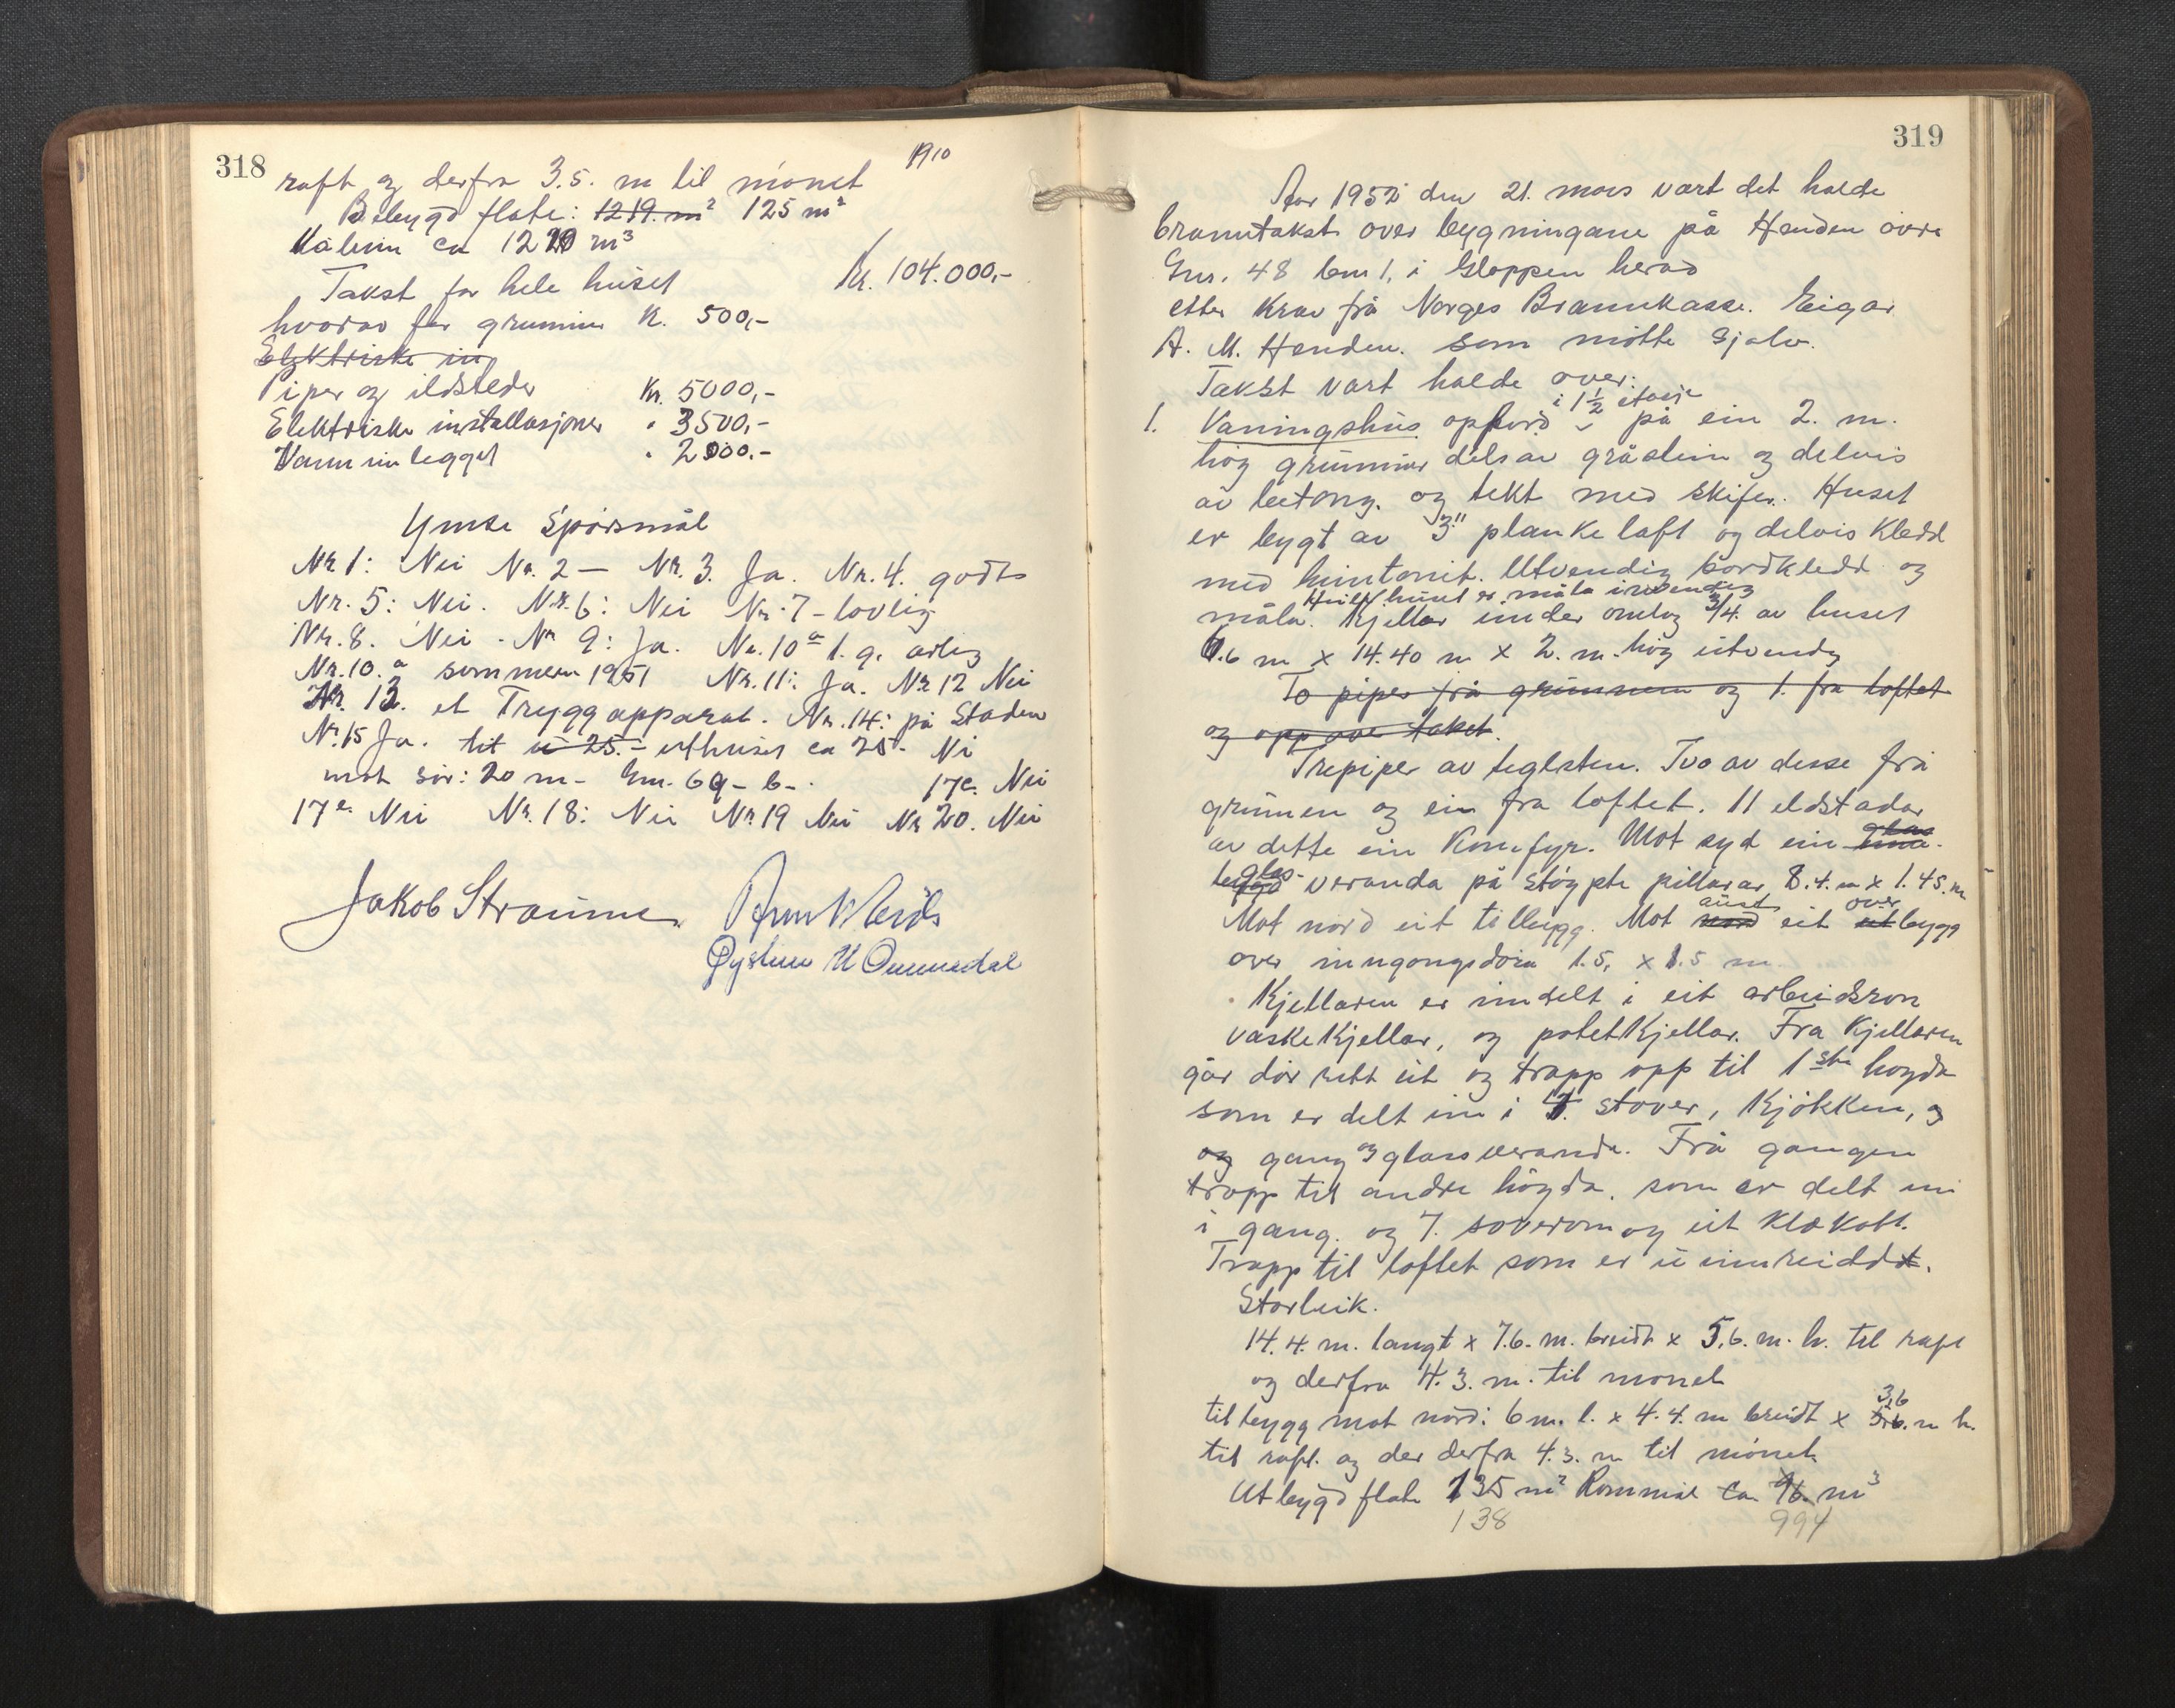 318
1910
raft og derfra 3.5. m til mønet
Bebygd flate: 1219. m² 125 m²
ca 1219 m³
Takst for hele huset Kr. 104.000,-
hvorav for grunnmur K. 500,-
Elektriske in
Piper og ildsteder Kr. 5000,-
Elektriske installasjoner " 3500,-
Vann innlegget " 2000.-
Ymse Spørsmål
Nr 1: Nei Nr. 2 — Nr. 3. Ja. Nr. 4. godt
Nr. 5: Nei. Nr. 6: Nei Nr. 7 - lovlig
Nr. 8. Nei - Nr 9: Ja. Nr. 10a 1. g. årlig
Nr. 10.a sommeren 1951 Nr. 11: Ja. Nr 12 Nei
Nr. 13. et Trygg apparat. Nr. 14: på Staden
Nr. 15 Ja. til u 25.- uthuset ca 25- Ni
mot sør: 20 m - Gm. 69 - b - . 17c. Nei
17e. Nei Nr. 18: Nei Nr 19 Nei Nr 20. Nei
Jakob Straume
Øystein
319
Aar 1952 den 21. mars vart det halde
branntakst over bygningane på Henden øvre
Gnr. 48 bnr 1, i Gloppen herad
etter krav frå Norges Brannkasse. Eigar
A. M. Henden. som møtte sjølv.
Takst vart halde over:
i 1 1/2 etasje
1. Vaningshus oppførd på ein 2. m.
høg grunnmur dels av gråstein og delvis
av betong. og tekt med skifer. Huset
er bygt av 3" planke laft og delvis kledd
med huntonit. Utvendig bordkledd og
Heile huset er måla innvendig
måla. Kjellar under omlag 3/4. av huset
7.6 m x 14.40 m x 2. m. høg utvendig
To piper frå grunnen og 1. fra loftet
og opp over taket.
Trepiper av teglsten. Tvo av desse frå
grunnen og ein fra loftet. 11 eldstadar
av dette ein Komfyr. Mot syd ein glas
glas-
veranda på støypte pillarar 8.4. m x 1.45. m
aust over
Mot nord eit tilbygg. Mot nord eit utbygg
over inngongsdøra 1.5, x 1.5 m.
Kjellaren er inndelt i eit arbeidsrom
vaskekjellar, og potetkjellar. Fra Kjellaren
går dør rett ut og trapp opp til 1ste høgda
som er delt inn i 3. stover, Kjøkken, og
og gang og glassveranda. Frå gangen
trapp til andre høgda. som er delt inn
i gang. og 7. soverom og eit klekott.
Trapp til loftet som er uinnreiddt.
Storleik.
14.4. m. langt x 7.6. m. breidt x 5,6. m. h. til raft
og derfra 4.3. m. til mønet
3,6
tilbygg mot nord: 6 m. l. x 4.4. m breidt x 5.6. m h.
til raft. og der derfra 4.3. m til mønet
Utbygd flate 135 m² Rommål ca 96. m³
138 994